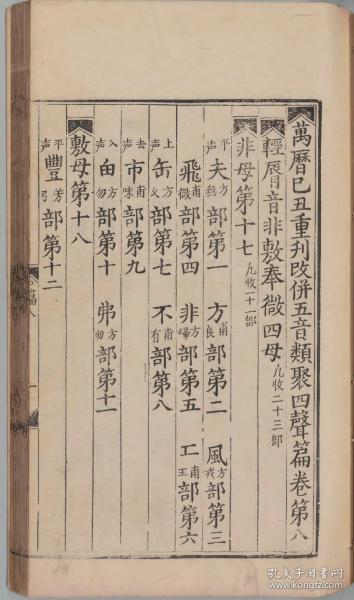 萬曆己丑重刊改併五音類聚四聲篇卷第八
輕脣音非敷奉微四母凡收二十三部
非母第十七凡收一十一部
平声夫方無部第一 方甫良部第二 風方戎部第三
飛甫微部第四 非方部第五 匚甫王部第六
上声缶方久部第七 不甫有部第八
去声市甫味部第九
入声甶方勿部第十 弗方勿部第十一
敷母第十八
平声豐芳弓部第十二
篇八
孔夫子旧书网
book.kongfz.com